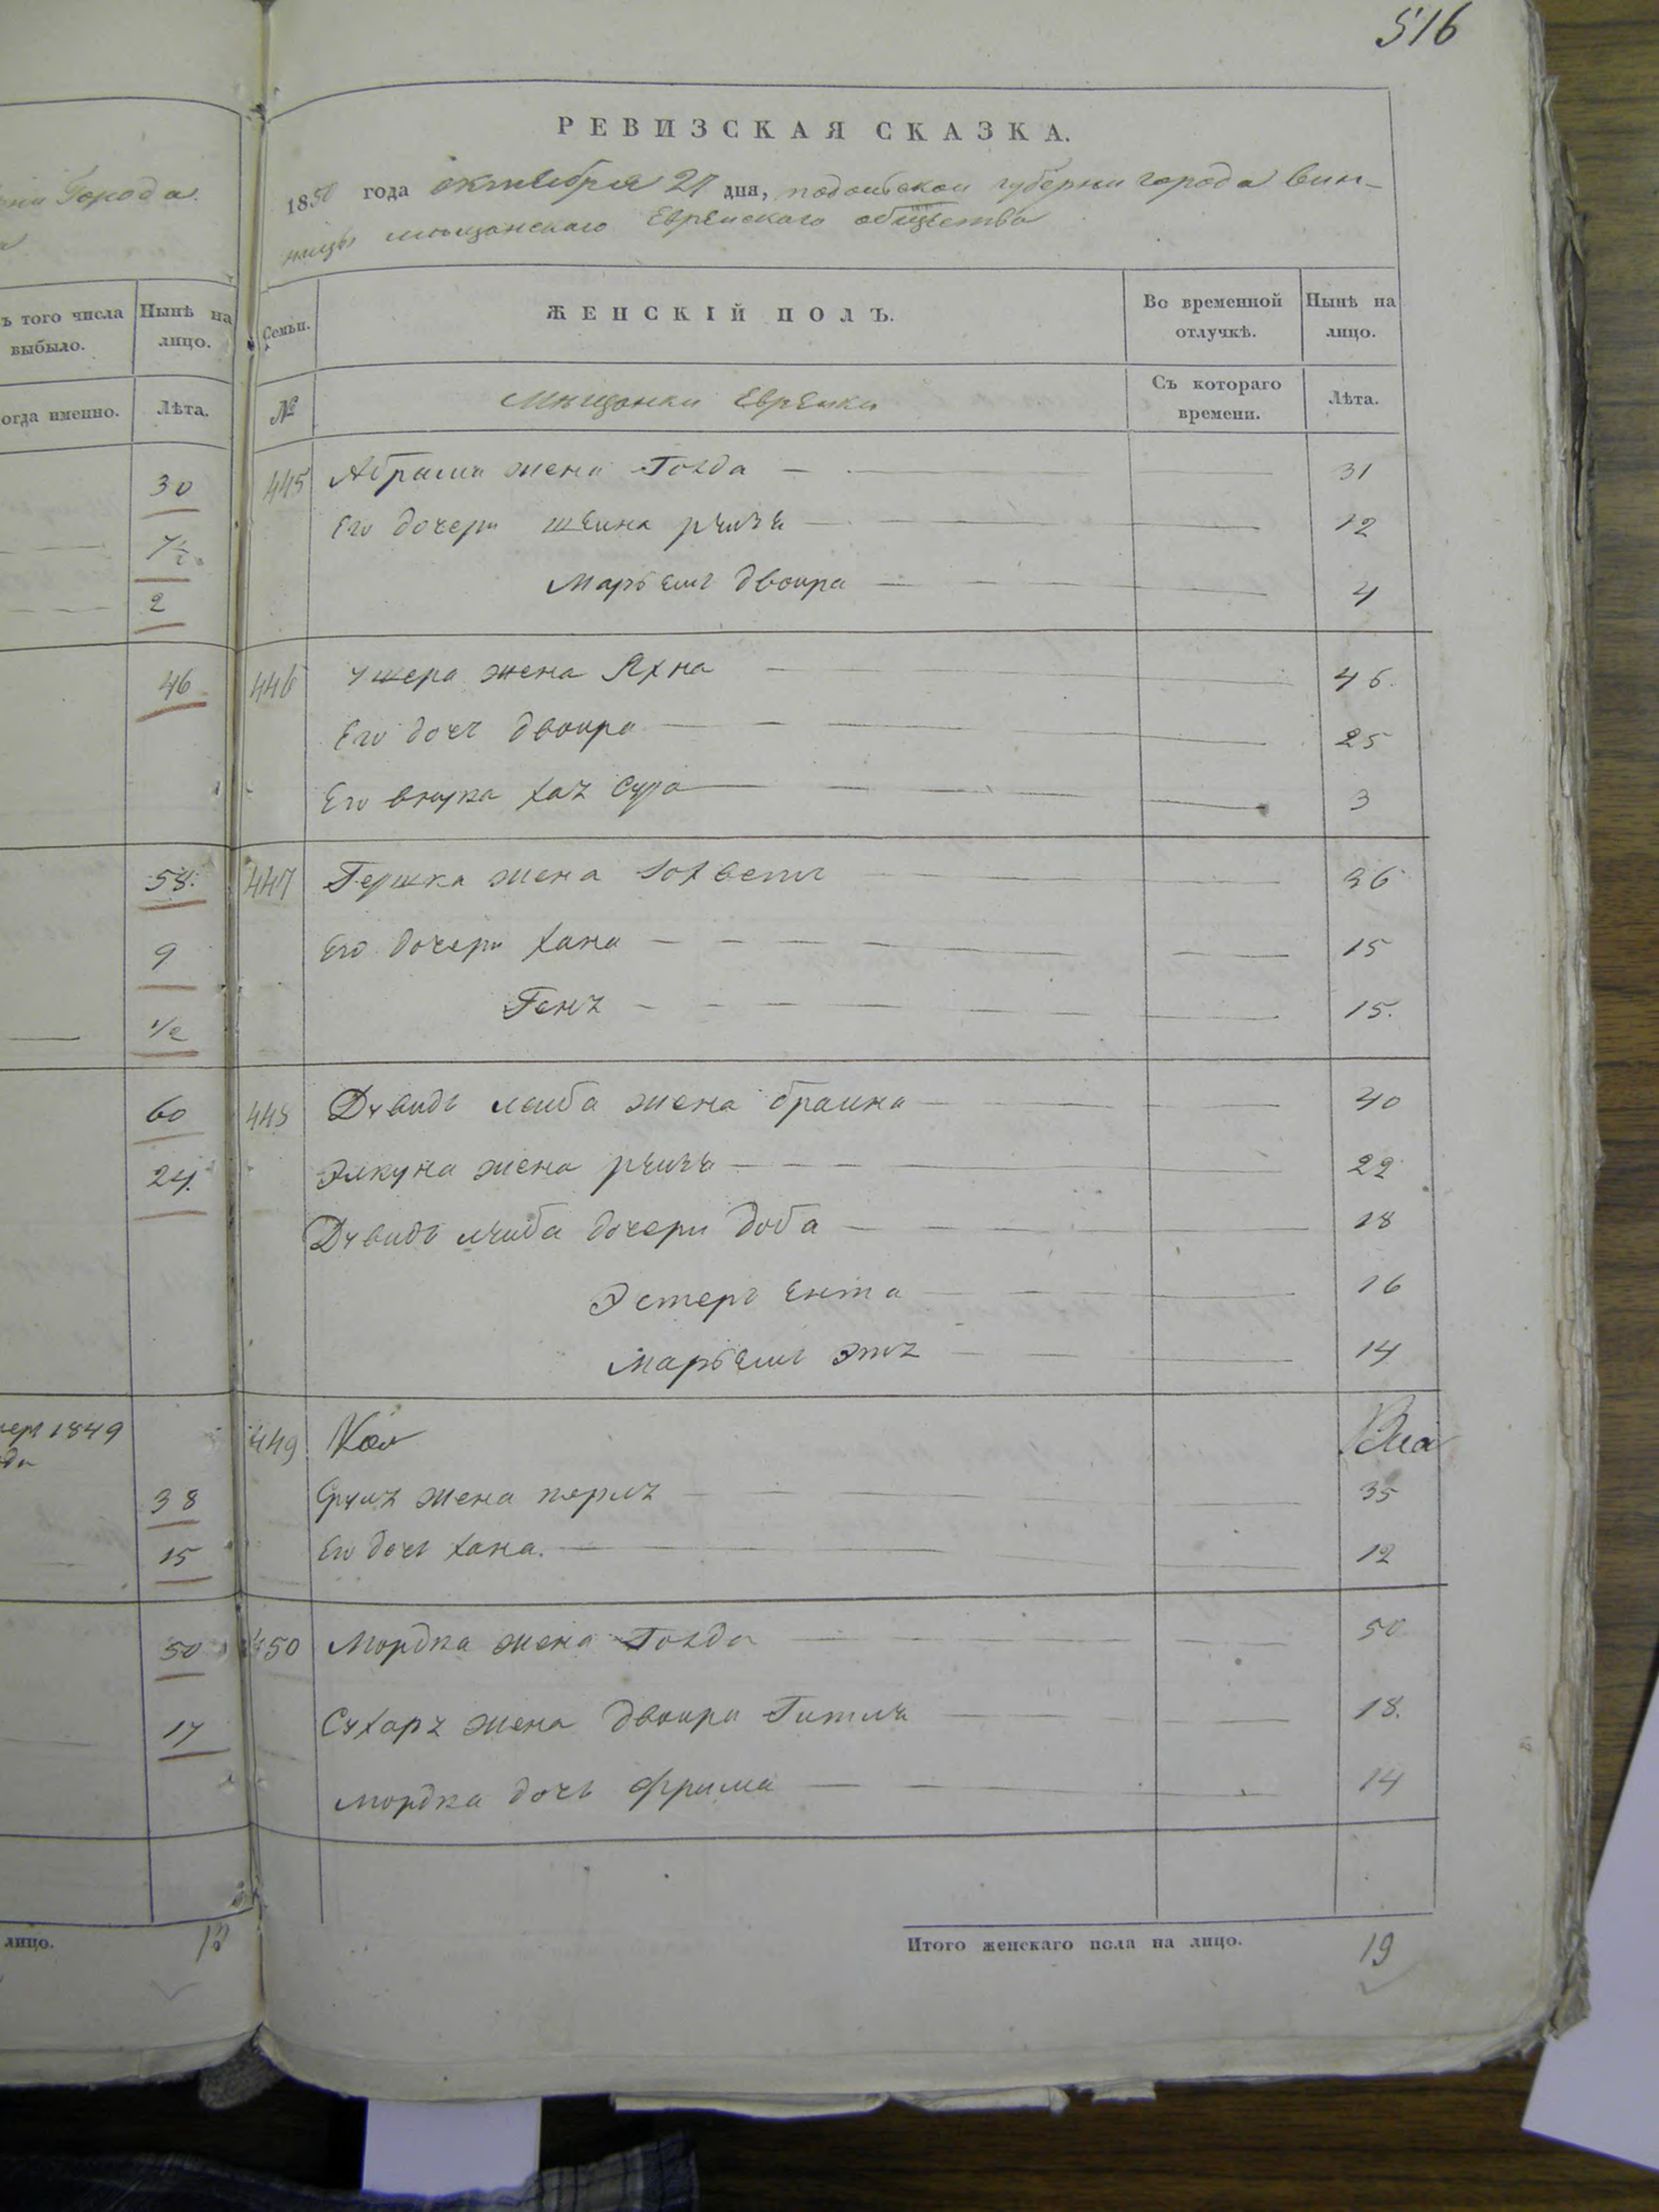 516
РЕВИЗСКАЯ СКАЗКА.
Города.
1850 года октября 27 дня, подольской губерни города Вин-
ницы мещанскаго Еврейскаго общества
ъ того числа выбыло.
Нынѣ на лицо.
Семьи.
ЖЕНСКІЙ ПОЛЪ.
Во временной отлучкѣ.
Нынѣ на лицо.
огда именно.
Лѣта.
№
Мещанки Евреики
Съ котораго времени.
Лѣта.
30 445 Абрама жена Голда 31
7½ Его дочери Шеина 12
2 Двоира 4
46 446 Ушера жена Яхна 46.
Его дочь двоира 25
Его внука Сура 3
58. 447 Гершка жена 36
9 Его дочери хана 15
1/2 15.
60 448 лейба жена браина 40
24. жена 22
лейба дочери доба 18
Эстеръ Ента 16
14
1849 449
38 жена перля 35
15 Его дочь хана. 12
50 450 Мордка жена Голда 50
17 жена двоира Гитля 18.
мордка дочь Фрима 14
лицо. 13
Итого женскаго пола на лицо. 19